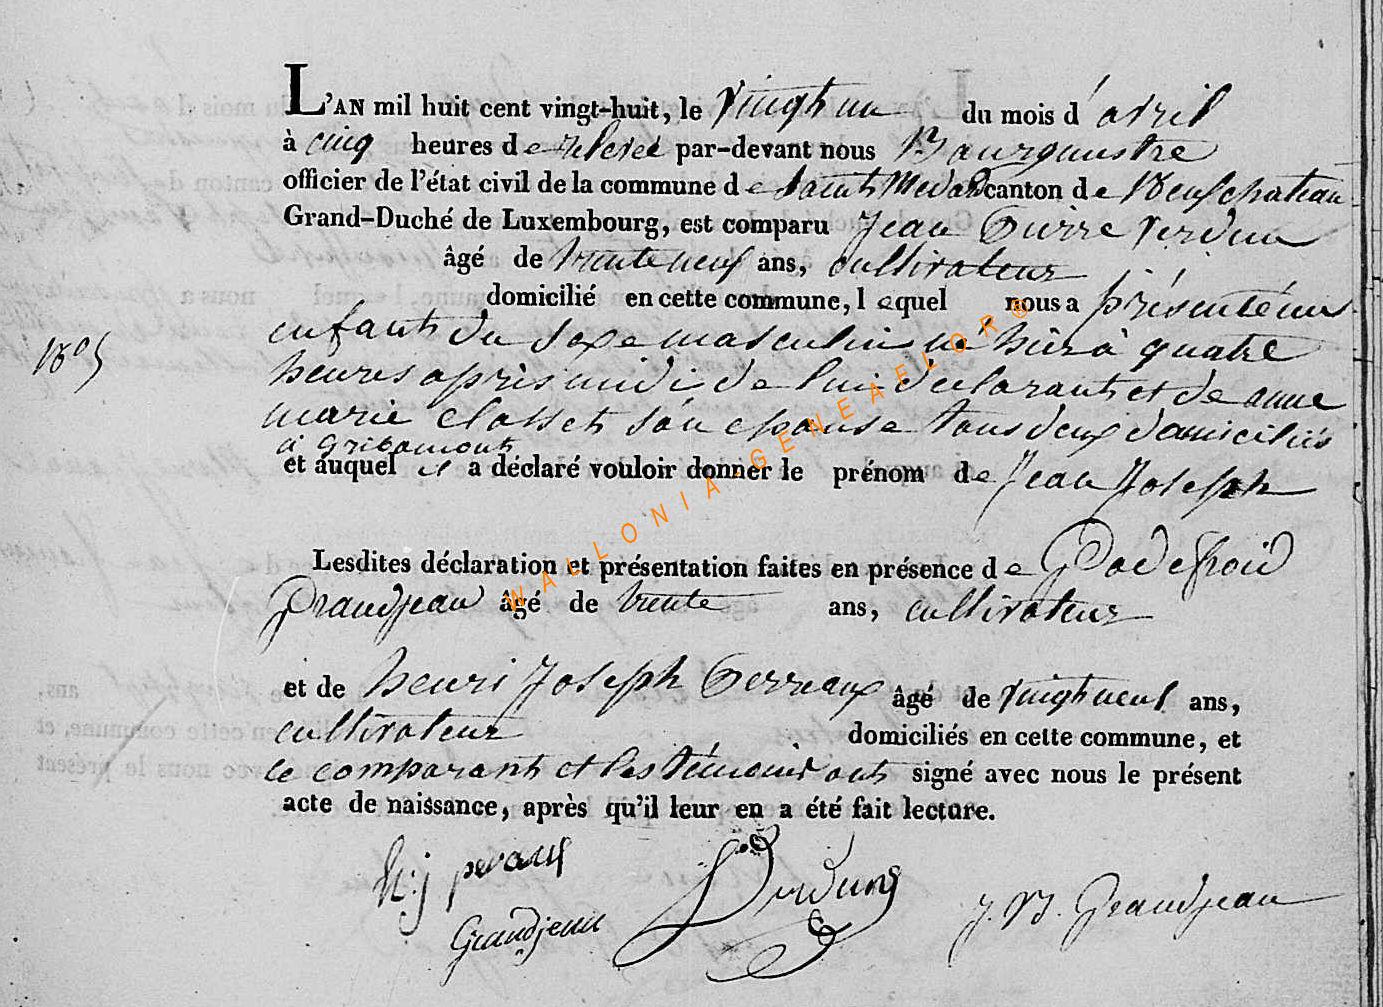 L'AN mil huit cent vingt-huit, le vingt un du mois d'avril
à cinq heures de relevée par-devant nous Bourguestre
officier de l'état civil de la commune de Saint Medard canton de Neufchateau
Grand-Duché de Luxembourg, est comparu Jean Pierre Verdun
âgé de trente neuf ans, cultivateur
domicilié en cette commune, lequel nous a présenté un
enfant du sexe masculin né hier à quatre
heures après midi de lui déclarant et de anne
marie Closset son épouse tous deux domiciliés
à Gribomont
et auquel il a déclaré vouloir donner le prénom de Jean Joseph
Lesdites déclaration et présentation faites en présence de Godefroid
Grandjean âgé de trente ans, cultivateur
et de henri Joseph Perreaux âgé de vingt neuf ans,
cultivateur domiciliés en cette commune, et
le comparant et les témoins ont signé avec nous le présent
acte de naissance, après qu'il leur en a été fait lecture.
h:j peraux
Grandjean
Verdun
J. B. Grandjean
WALLONIA-GENEAFLOR®